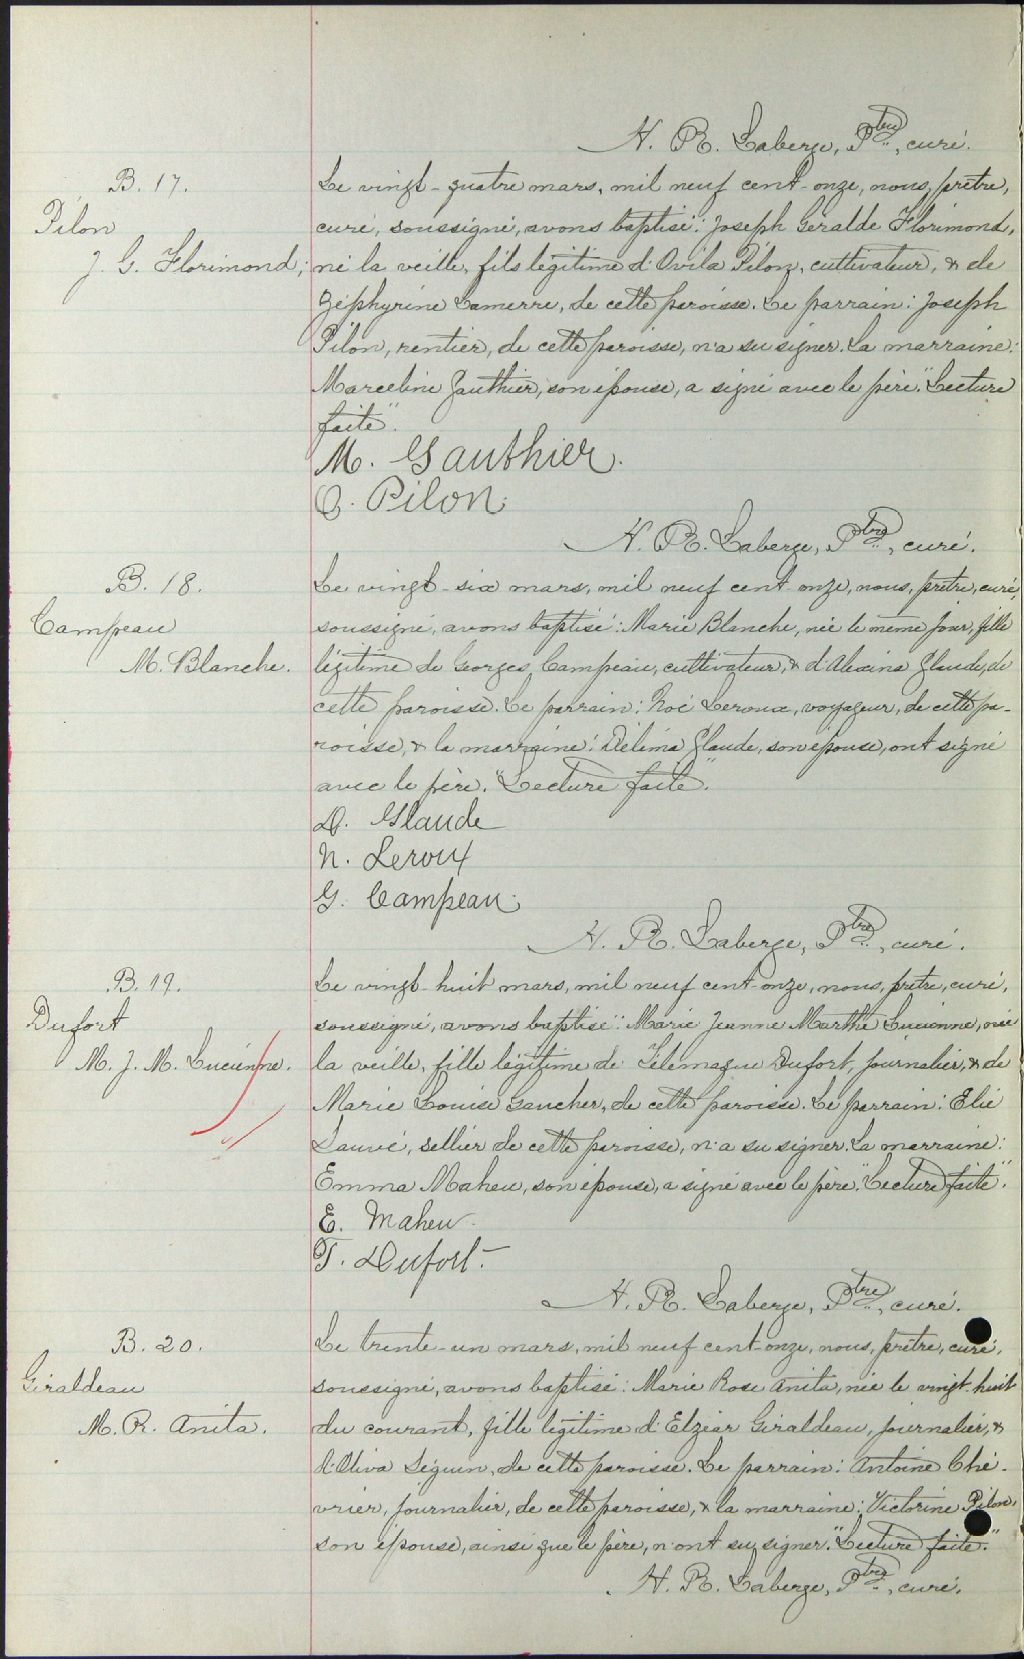 H. R. Laberge, Ptre, curé.
B. 17.
Pilon
J. G. Florimond;
Le vingt-quatre mars, mil neuf cent-onze, nous, prêtre,
curé, soussigné, avons baptisé: Joseph Géralde Florimond,
né la veille, fils légitime d'Ovila Pilon, cultivateur, & de
Zéphyrine Lamerre, de cette paroisse. Le parrain: Joseph
Pilon, rentier, de cette paroisse, n'a su signer. La marraine:
Marceline Gauthier, son épouse, a signé avec le père. "Lecture
faite".
M. Gauthier.
O. Pilon.
H. R. Laberge, Ptre, curé.
B. 18.
Campeau
M. Blanche.
Le vingt-six mars, mil neuf cent onze, nous, prêtre, curé,
soussigné, avons baptisé: Marie Blanche, née le même jour, fille
légitime de Georges Campeau, cultivateur, & d'Alexina Glaude, de
cette paroisse. Le parrain: Noé Leroux, voyageur, de cette pa-
roisse, & la marraine: Délima Glaude, son épouse, ont signé
avec le père. "Lecture faite".
D. Glaude
N. Leroux
G. Campeau.
H. R. Laberge, Ptre, curé.
B. 19.
Dufort
M. J. M. Lucienne.
Le vingt-huit mars, mil neuf cent-onze, nous, prêtre, curé,
soussigné, avons baptisé: Marie Jeanne Marthe Lucienne, née
la veille, fille légitime de Télémaque Dufort, journalier, & de
Marie Louise Gaucher, de cette paroisse. Le parrain: Elie
Sauvé, sellier de cette paroisse, n'a su signer. La marraine:
Emma Maheu, son épouse, a signé avec le père. "Lecture faite".
E. Maheu.
T. Dufort.-
H. R. Laberge, Ptre, curé.
B. 20.
Giraldeau
M. R. Anita.
Le trente-un mars, mil neuf cent-onze, nous, prêtre, curé,
soussigné, avons baptisé: Marie Rose Anita, née le vingt-huit
du courant, fille légitime d'Elzéar Giraldeau, journalier, &
d'Oliva Séguin, de cette paroisse. Le parrain: Antoine Ché-
vrier, journalier, de cette paroisse, & la marraine: Victorine Pilon,
son épouse, ainsi que le père, n'ont su signer. "Lecture faite."
H. R. Laberge, Ptre, curé.